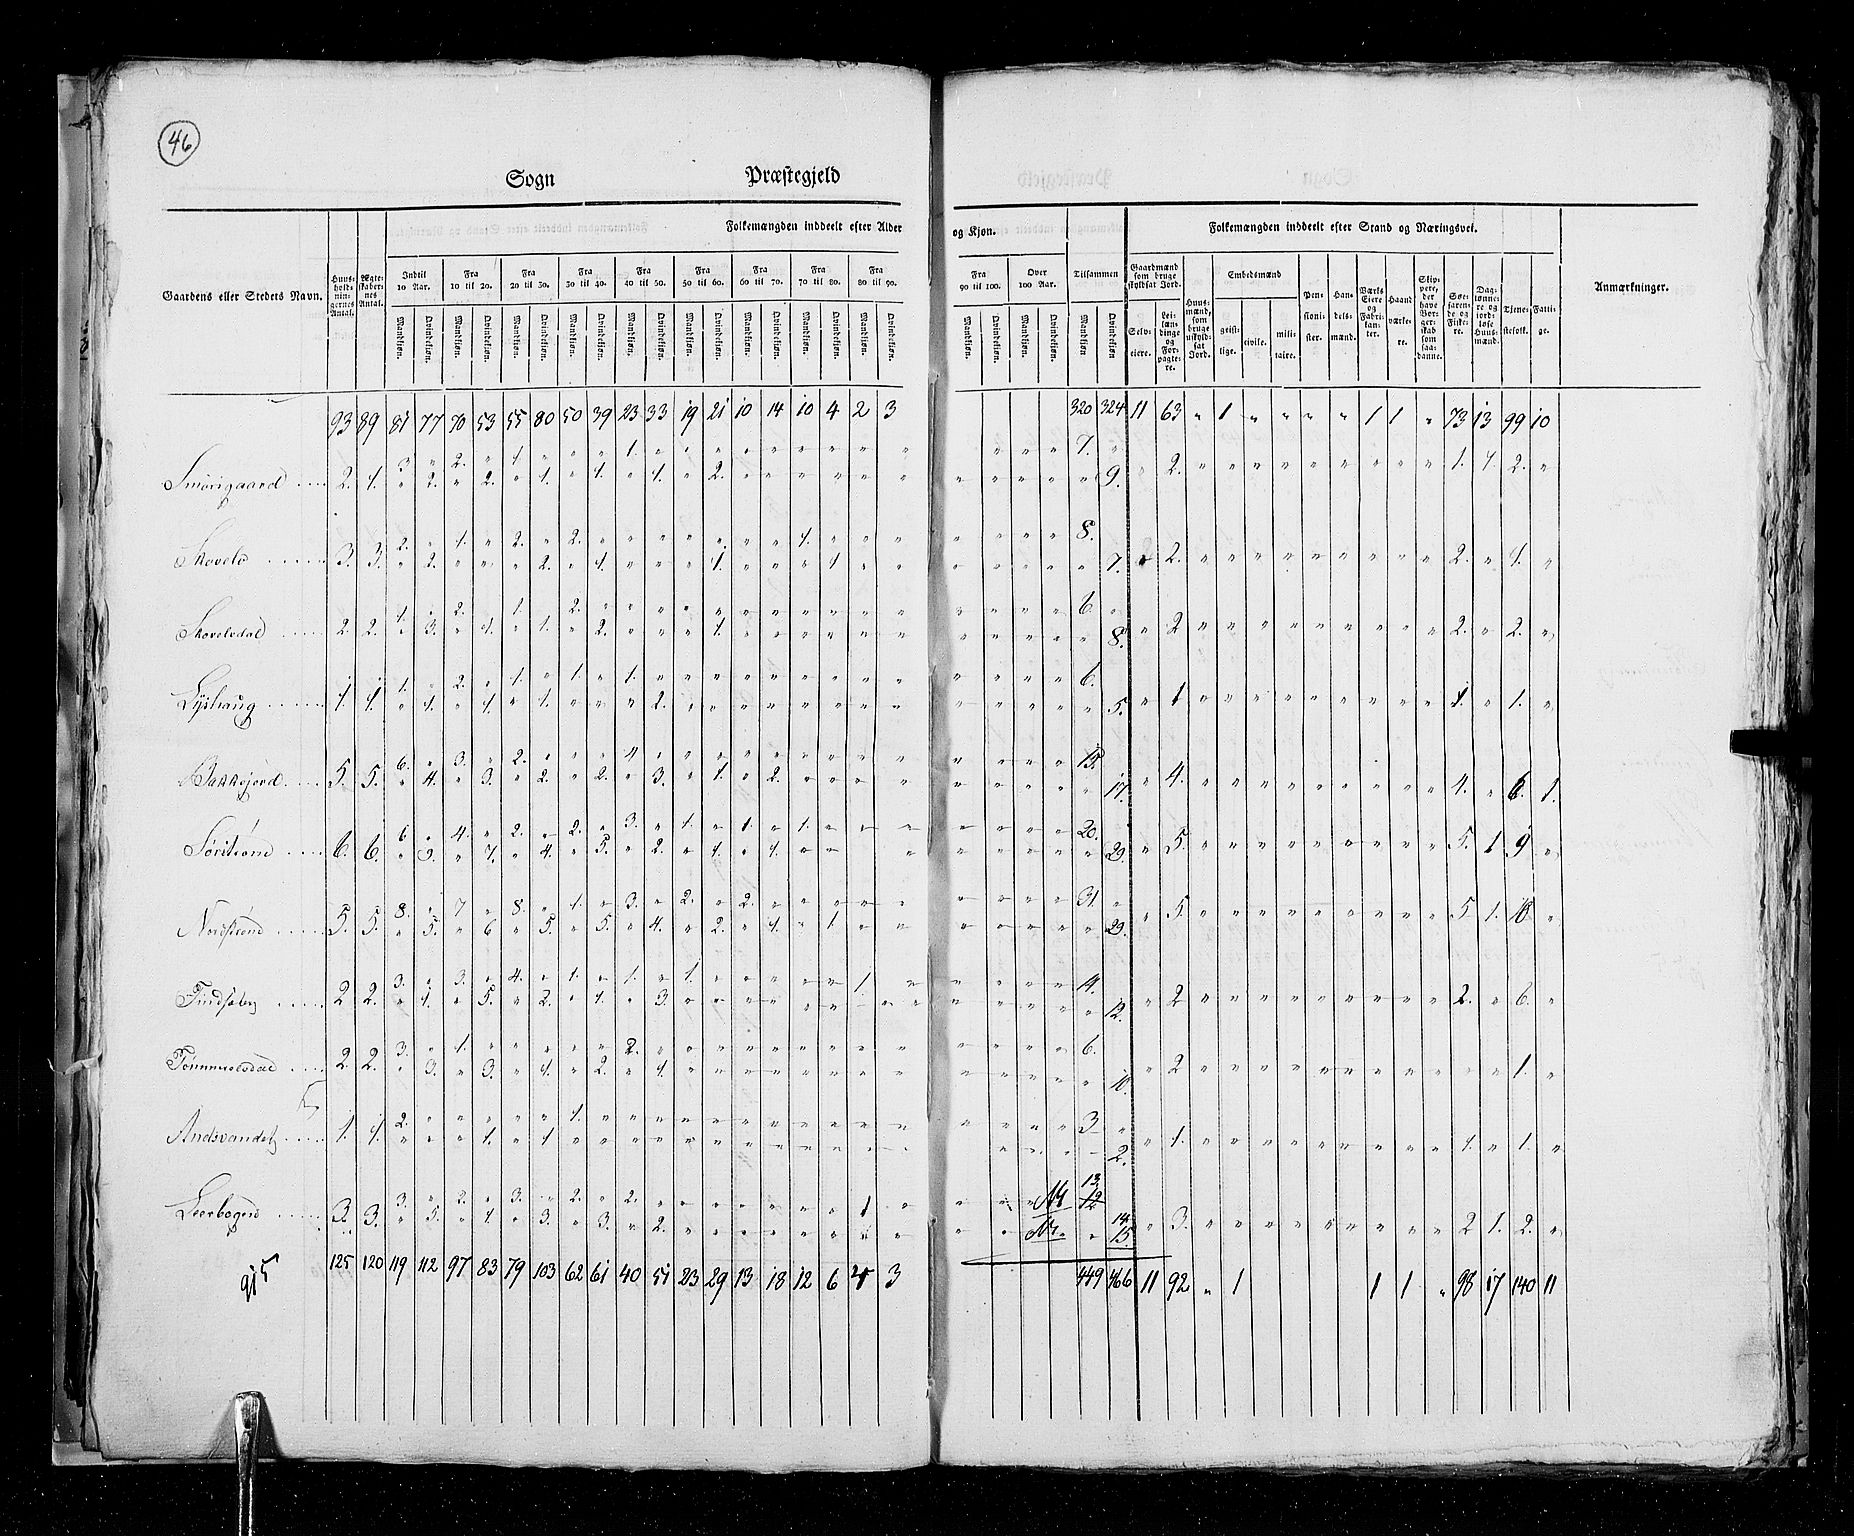 46
Sogn Præstegjeld
Gaardens eller Stedets Navn.
Huus-holdnin-gernes Antal.
Ægte-skaber-nes Antal.
Folkemængden inddeelt efter Alder og Kjøn.
Indtil 10 Aar. Fra 10 til 20. Fra 20 til 30. Fra 30 til 40. Fra 40 til 50. Fra 50 til 60. Fra 60 til 70. Fra 70 til 80. Fra 80 til 90. Fra 90 til 100. Over 100 Aar. Tilsammen
Mandkjøn. Qvindekjøn.
Folkemængden inddeelt efter Stand og Næringsvei.
Gaardmænd som bruge skyldsat Jord.
Selveiere.
Leilændinge og Forpagtere.
Huusmænd, som bruge uskyldsat Jord.
Embedsmænd
geistlige. civile. militaire.
Pensionister.
Handelsmænd.
Værks Eiere og Fabrikanter.
Haandværkere.
Slippere, der have Borgerskab som saadanne.
Søefarende og Fiskere.
Daglønnere og jordløse Huusmænd.
Tjenestefolk.
Fattige.
Anmærkninger.
93 89 81 77 70 53 55 80 50 39 23 33 19 21 10 14 10 4 2 3 320 324 11 63 " 1 " " " " 1 1 " 73 13 99 10
3. " 2. " 1. " " " 1. " " " " " " " " " 7. "
Smörsgaard 2. 1. " 2. " 2. " 1. " 1. " 1. " 2. " " " " " " " 9. " 2. " " " " " " " " " 1. 1. 2. "
2. " 1. " 2. " 2. " " " " " " " 1. " " " 8.
Skovelv 3. 3. " 2. " " " 2. " 1. " " " 1. " " " 1 " " " 7. " 2. " " " " " " " " " 2. " 1. "
1. " 2. " 1. " 2. " " " " " " " " " " " 6. "
Skovelvdal 2 2. " 3. " 1. " 1. " 2. " " " 1. " " " " " " " 8. " 2 " " " " " " " " " 2. " 2. "
1. " 2. " 1. " 1. " 1. " " " " " " " " " 6.
Lyshaug 1. 1. " 1. " 1. " 1. " " " 2. " " " " " " " " " 5. " 1 " " " " " " " " " 1. " 1. "
6. " 3. " 2. " " " 4 " " " " " " " " " 15.
Bakkejord 5. 5. " 4. " 3. " 2. " 2. " 3. " 1. " 2. " " " " " 17. " 4. " " " " " " " " " 4. " 6. 1.
6 " 4. " 2. " 2. " 3. " 1. " 1. " 1. " " " 20.
Sörströme 6. 6. " 3. " 7. " 4. " 5. " 2. " 1. " 1. " " " " 23. " 5. " " " " " " " " " 5. 1. 9 "
8. " 7 " 8. " 1. " 3. " 2. " 2. " " " " " 31. "
Nordströmd 5. 5. " 5. " 6 " 5. " 5. " 4. " 2. " 1. " 1 " " " 29. " 5. " " " " " " " " " 5 1. 10. "
3. " 3. " 4. " 1. " 1. " 1. " " " " " 1 " 14.
2 2. " 1. " 5. " 2. " 1. " 3. " " " " " " " " " 12. " 2 " " " " " " " " " 2. " 6. "
3. " 1. " " " " " 2. " " " " " " " " " 6.
2 2. " 3. " 3. " 1. " 2. " 1. " " " " " " " " " 10. " 2 " " " " " " " " " " " 1. "
2. " " " " " 1. " " " " " " " " " " " 3. "
Andsvandet 1. 1. " " " 1. " 1 " " " " " " " " " " " " " 2. " 1. " " " " " " " " " 1. " 1. "
3. " 2. " 3. " 2. " 2. " " " " " " " 1 " 13. 12
Leerbogen 3. 3. " 5. " 1. " 3. " 3. " 2. " " " " " " " " " 14. 15. " 3. " " " " " " " " " 2 1. 2. "
915 125 120 119 112 97 83 79 103 62 61 40 51 23 29 13 18 12 6 4 3 449 466 11 92 " 1 1 1 " 98 17 140 11